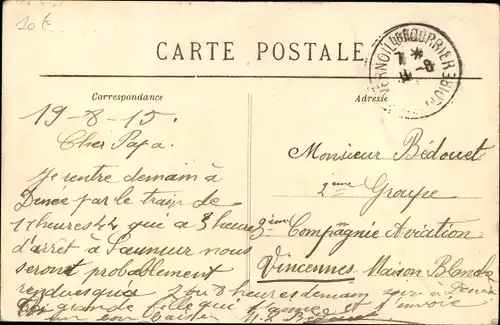 10 €
CARTE POSTALE
Correspondance
Adresse
19-8-15.
Cher Papa.
Je rentre demain à
par le train de
17 heures 44 qui a 3 heures
d'arrêt à Saumur nous
seront probablement
rendues que
2 ou 3 heures demain soir à
grande fille qui t'aime et t'envoie
un bon baiser
Monsieur Bédouet
2ème Groupe
Compagnie Aviation
Vincennes Maison Blanche